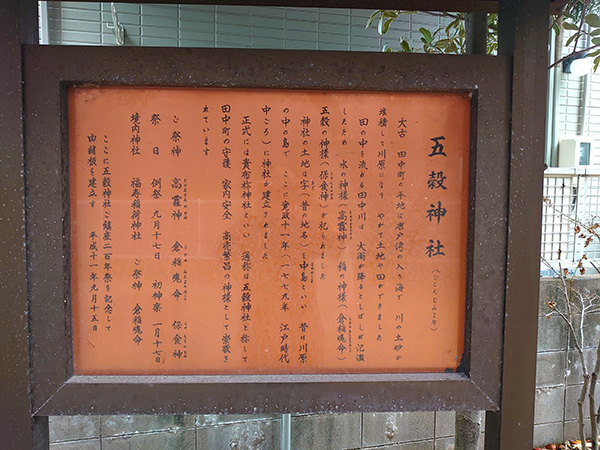 五穀神社（ごこくじんじゃ）
太古　田中町の平地は唐戸湾の入り海で　川の土砂が
堆積して川原になり　やがて土地や田ができました
田の中を流れる田中川は　大雨が降るとしばしば氾濫
したため　水の神様（高龗神）稲の神様（倉稲魂命）
五穀の神様（保食神）が祀られました
神社の土地は字（昔の地名）を中島といい　昔は川原
の中の島で　ここに寛政十一年（一七七九年　江戸時代
中ごろ）に神社が建立されました
正式には貴布祢神社といい　通称は五穀神社と称して
田中町の守護　家内安全　商売繁昌の神様として崇敬さ
れています
ご祭神　高龗神　倉稲魂命　保食神
祭　日　例祭　九月十七日　初神楽　一月十七日
境内神社　福寿稲荷神社　ご祭神　倉稲魂命
ここに五穀神社ご鎮座二百年祭を記念して
由緒板を建立す　平成十一年九月十五日